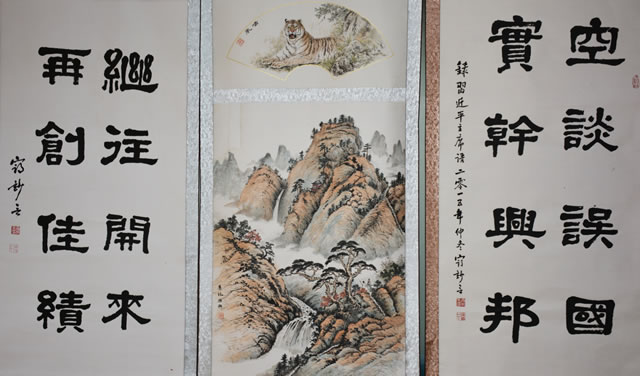 空談誤國
實幹興邦
錄習近平主席語二零一五年仲冬
繼往開來
再創佳績